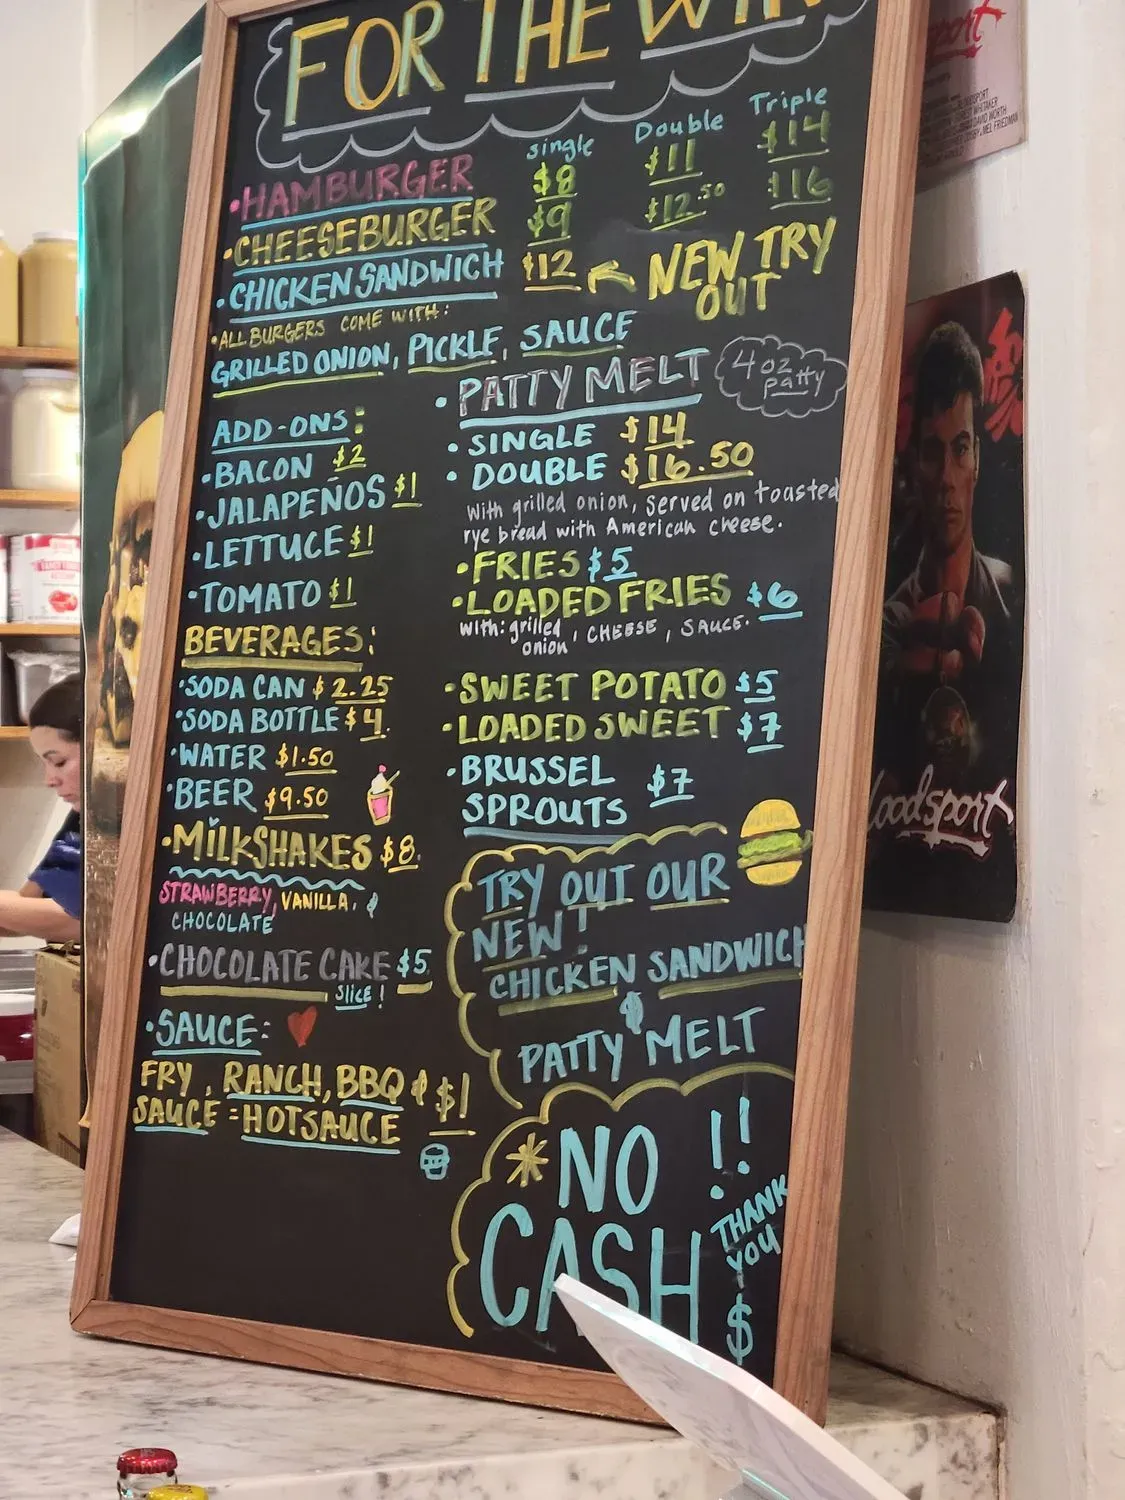 FOR THE WIN
single Double Triple
• HAMBURGER $8 $11 $14
• CHEESEBURGER $9 $12.50 $16
• CHICKEN SANDWICH $12 NEW TRY
OUT
• ALL BURGERS COME WITH:
GRILLED ONION, PICKLE, SAUCE
ADD-ONS:
• BACON $2
• JALAPEÑOS $1
• LETTUCE $1
• TOMATO $1
BEVERAGES:
• SODA CAN $2.25
• SODA BOTTLE $4.
• WATER $1.50
• BEER $9.50
• MILKSHAKES $8.
STRAWBERRY, VANILLA, &
CHOCOLATE
• CHOCOLATE CAKE $5
SLICE!
• SAUCE:
FRY, RANCH, BBQ & $1
SAUCE = HOTSAUCE
• PATTY MELT 4 oz
patty
• SINGLE $14
• DOUBLE $16.50
with grilled onion, served on toasted
rye bread with American cheese.
• FRIES $5
• LOADED FRIES $6
with: grilled
onion, CHEESE, SAUCE.
• SWEET POTATO $5
• LOADED SWEET $7
• BRUSSEL
SPROUTS $7
TRY OUT OUR
NEW!
CHICKEN SANDWICH
&
PATTY MELT
* NO !!
CASH
THANK
YOU
$
bloodsport